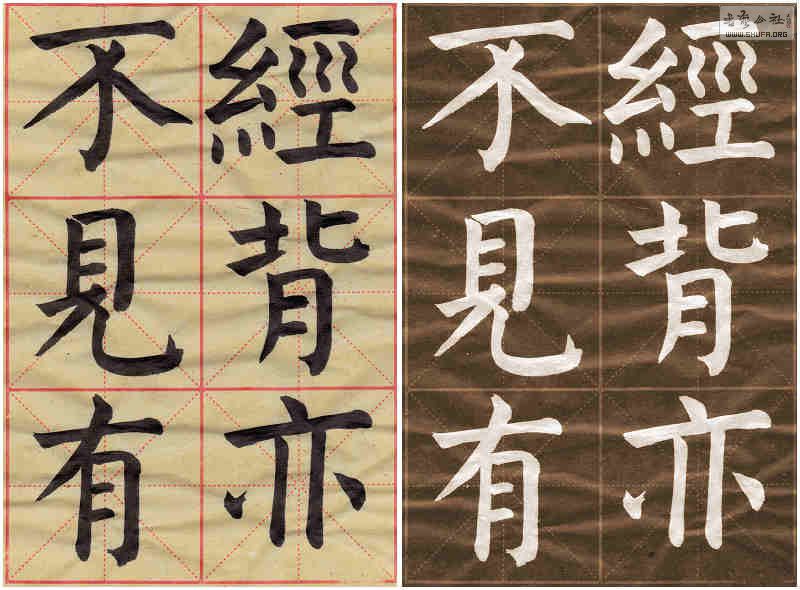 經背亦
不見有
經背亦
不見有
WWW.SHUFA.ORG